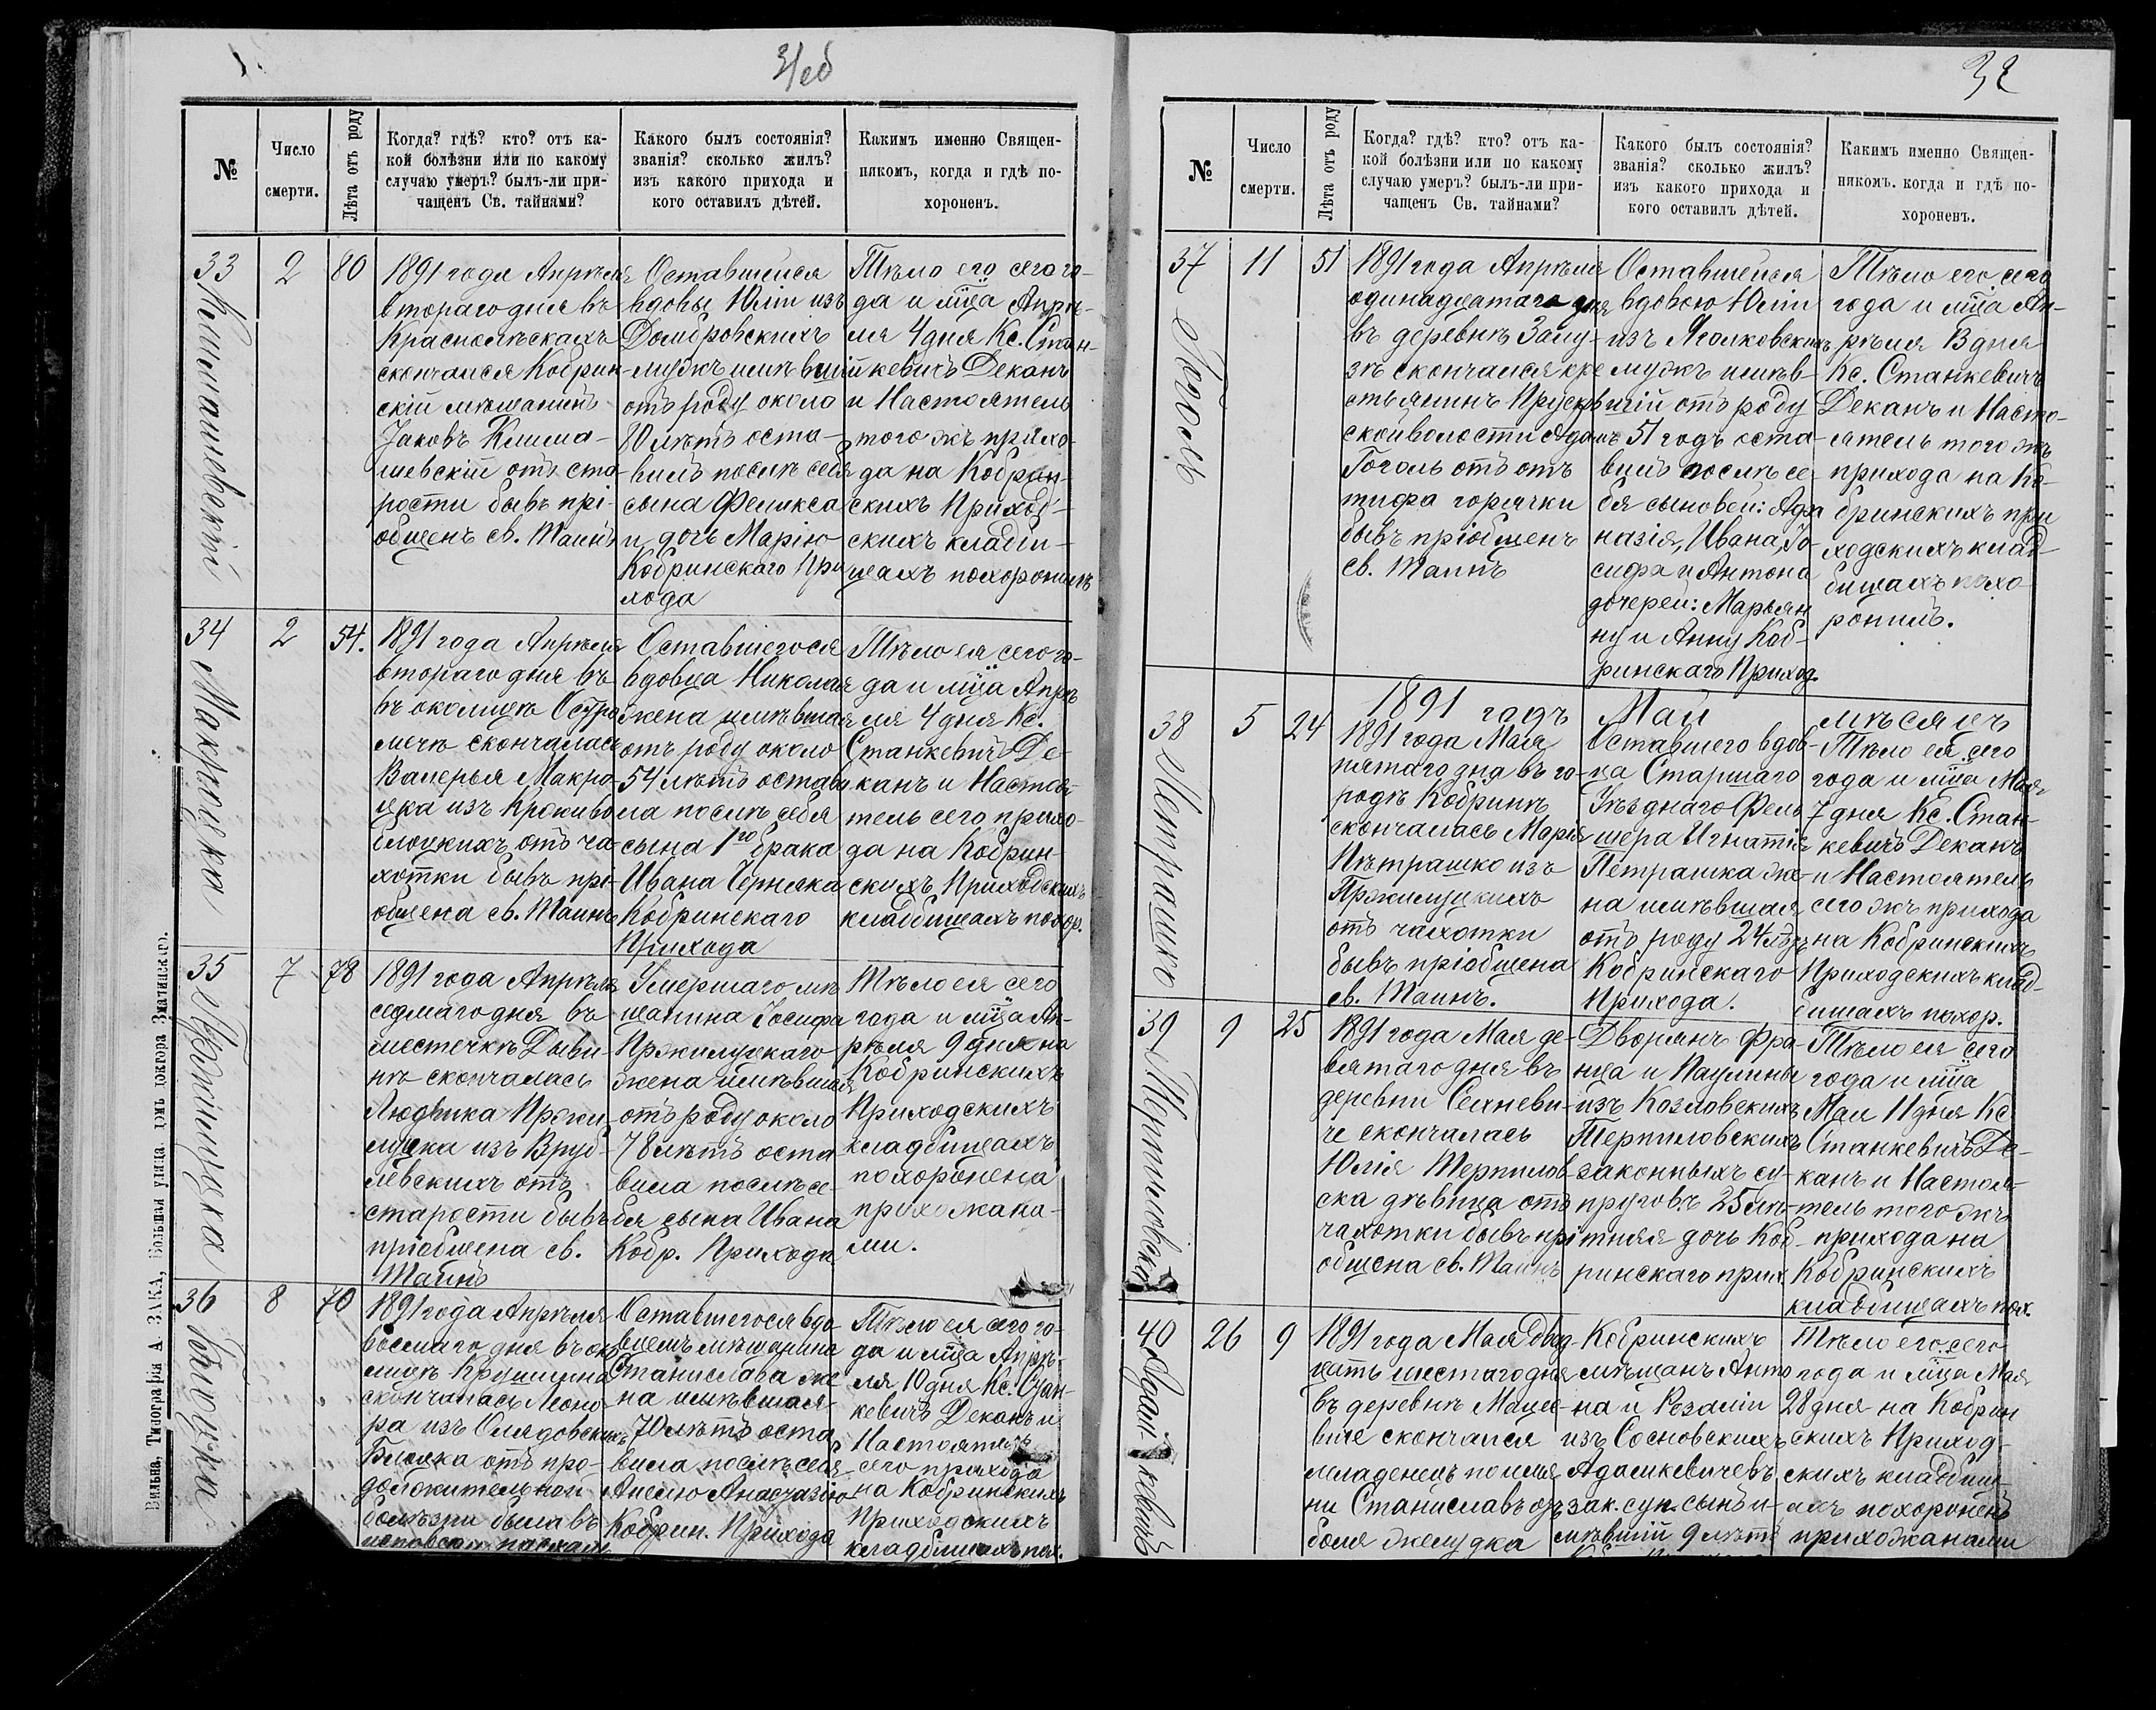 31об
№
Число
смерти.
Лѣта отъ роду
Когда? гдѣ? кто? отъ ка-
кой болѣзни или по какому
случаю умеръ? былъ-ли при-
чащенъ Св. тайнами?
Какого былъ состоянія?
званія? сколько жилъ?
изъ какого прихода и
кого оставилъ дѣтей.
Какимъ именно Священ-
никомъ, когда и гдѣ по-
хороненъ.
33
Климашевскій
2
80
1891 года Апрѣля
втораго дня въ
скончался Кобрин-
скій мѣщанинъ
Іаковъ Клима-
шевскій отъ ста-
рости бывъ прі-
общенъ св. Таинъ
Оставшейся
вдовы Юліи изъ
Домбровскихъ
мужъ имѣвшій
отъ роду около
80 лѣтъ оста-
вилъ послѣ себя
сына Феликса
и дочь Марію
Кобринскаго При
хода
Тѣло его сего го-
да и мца Апрѣ-
ля 4 дня Кс. Стан-
кевичъ Деканъ
и Настоятель
того жъ прихо-
да на Кобрин-
скихъ Приход-
скихъ кладби-
щахъ похоронилъ
34
Макрицкая
2
54.
1891 года Апрѣля
втораго дня въ
въ околицѣ Остро
мечѣ скончалась
Валерья Макри-
цка из Крживо
блоцкихъ отъ ча-
хотки бывъ прі-
общена св. Таинъ
Оставшегося
вдовца Николая
жена имѣвшая
отъ роду около
54 лѣтъ остави
ла послѣ себя
сына 1го брака
Ивана Черняка
Кобринскаго
Прихода
Тѣло ея сего го-
да и мца Апрѣ
ля 4 дня Кс.
Станкевичъ Де-
канъ и Настоя-
тель сего прихо-
да на Кобрин-
скихъ Приходскихъ
кладбищахъ похор.
35
Пржилуцка
7
78
1891 года Апрѣля
седмаго дня въ
местечкѣ Диви-
нѣ скончалась
Людвика Пржи-
луцка изъ Вруб-
левскихъ отъ
старости бывъ
пріобщена св.
Таинъ
Умершаго мѣ
щанина Іосифа
Пржилуцкаго
жена имѣвшая
отъ роду около
78 лѣтъ оста
вила послѣ се-
бя сына Ивана
Кобр. Прихода
Тѣло ея сего
года и мца Ап-
рѣля 9 дня на
Кобринскихъ
Приходскихъ
кладбищахъ
похоронена
прихожана-
ми.
36
8
70
1891 года Апрѣля
восмаго дня въ око
лицѣ
скончалась Леоно
ра изъ
отъ про-
должительной
болѣзни бывъ
Оставшегося вдо
вцемъ мѣщанина
Станислава же
на имѣвшая
70 лѣтъ оста
вила послѣ себя
Кобрин. Прихода
Тѣло ея сего го-
да и мца Апрѣ-
ля 10 дня Кс. Стан-
кевичъ Деканъ и
Настоятель
сего прихода
на Кобринскихъ
Приходскихъ
кладбищахъ пох.
Вильна, Типографія А. ЗАКА, Большая улица, домъ доктора Змачинскаго.
32
№
Число
смерти.
Лѣта отъ роду
Когда? гдѣ? кто? отъ ка-
кой болѣзни или по какому
случаю умеръ? былъ-ли при-
чащенъ Св. тайнами?
Какого былъ состоянія?
званія? сколько жилъ?
изъ какого прихода и
кого оставилъ дѣтей.
Какимъ именно Священ-
никомъ. когда и гдѣ по-
хороненъ.
37
Гоголь
11
51
1891 года Апрѣля
одинадцатаго дня
въ деревнѣ Залу-
зѣ скончался кре
стьянинъ Прусков
ской волости Адамъ
Гоголь отъ отъ
тифа горячки
бывъ пріобщенъ
св. Таинъ
Оставшейся
вдовою Юліи
изъ Яголковскихъ
мужъ имѣв-
шій отъ роду
51 годъ оста-
вилъ послѣ се-
бя сыновей: Афа
назія, Ивана, Іо-
сифа и Антона
дочерей: Марьян
ну и Анну Коб-
ринскаго Приход.
Тѣло его сего
года и мца Ап-
рѣля 13 дня
Кс. Станкевичъ
Деканъ и Насто-
ятель того жъ
прихода на Ко-
бринскихъ при
ходскихъ клад-
бищахъ похо-
ронилъ.
1891 годъ Май мѣсяцъ
38
Петрашко
5
24
1891 года Мая
пятаго дня въ го-
родѣ Кобринѣ
скончалась Марія
Пѣтрашко изъ
Пржилуцкихъ
отъ чахотки
бывъ пріобщена
св. Таинъ.
Оставшего вдов-
ца Старшаго
Уѣзднаго Фель
шера Игнатія
Петрашка же-
на имѣвшая
отъ роду 24 лѣтъ
Кобринскаго
Прихода.
Тѣло ея сего
года и мца Мая
7 дня Кс. Стан-
кевичъ Деканъ
и Настоятель
сего жъ прихода
на Кобринскихъ
Приходскихъ клад-
бищахъ похор.
39
Терпиловска
9
25
1891 года Мая де-
вятаго дня въ
деревни Сехневи-
че скончалась
Юлія Терпилов-
ска дѣвица отъ
чахотки бывъ прі
общена св. Таинъ
Дворянъ Фра-
нца и Паулины
изъ Козловскихъ
Терпиловскихъ
законныхъ су-
пруговъ 25 лѣ-
тняя дочь Коб-
ринскаго прих.
Тѣло ея сего
года и мца
Мая 11 дня Кс
Станкевичъ Де-
канъ и Настоя-
тель того жъ
прихода на
Кобринскихъ
кладбищахъ пох.
40
Адамкевичъ
26
9
1891 года Мая двад-
цать шестаго дня
въ деревнѣ Маце-
виче скончался
младенецъ по имя
ни Станиславъ отъ
боля желудка
Кобринскихъ
мѣщанъ Анто
на и Розаліи
изъ Сосновскихъ
Адамкевичевъ
зак. суп. сынъ и-
мѣвшій 9 лѣтъ
Тѣло его сего
года и мца Мая
28 дня на Кобрин
скихъ Приход-
скихъ кладбищ-
ахъ похороненъ
прихожанами